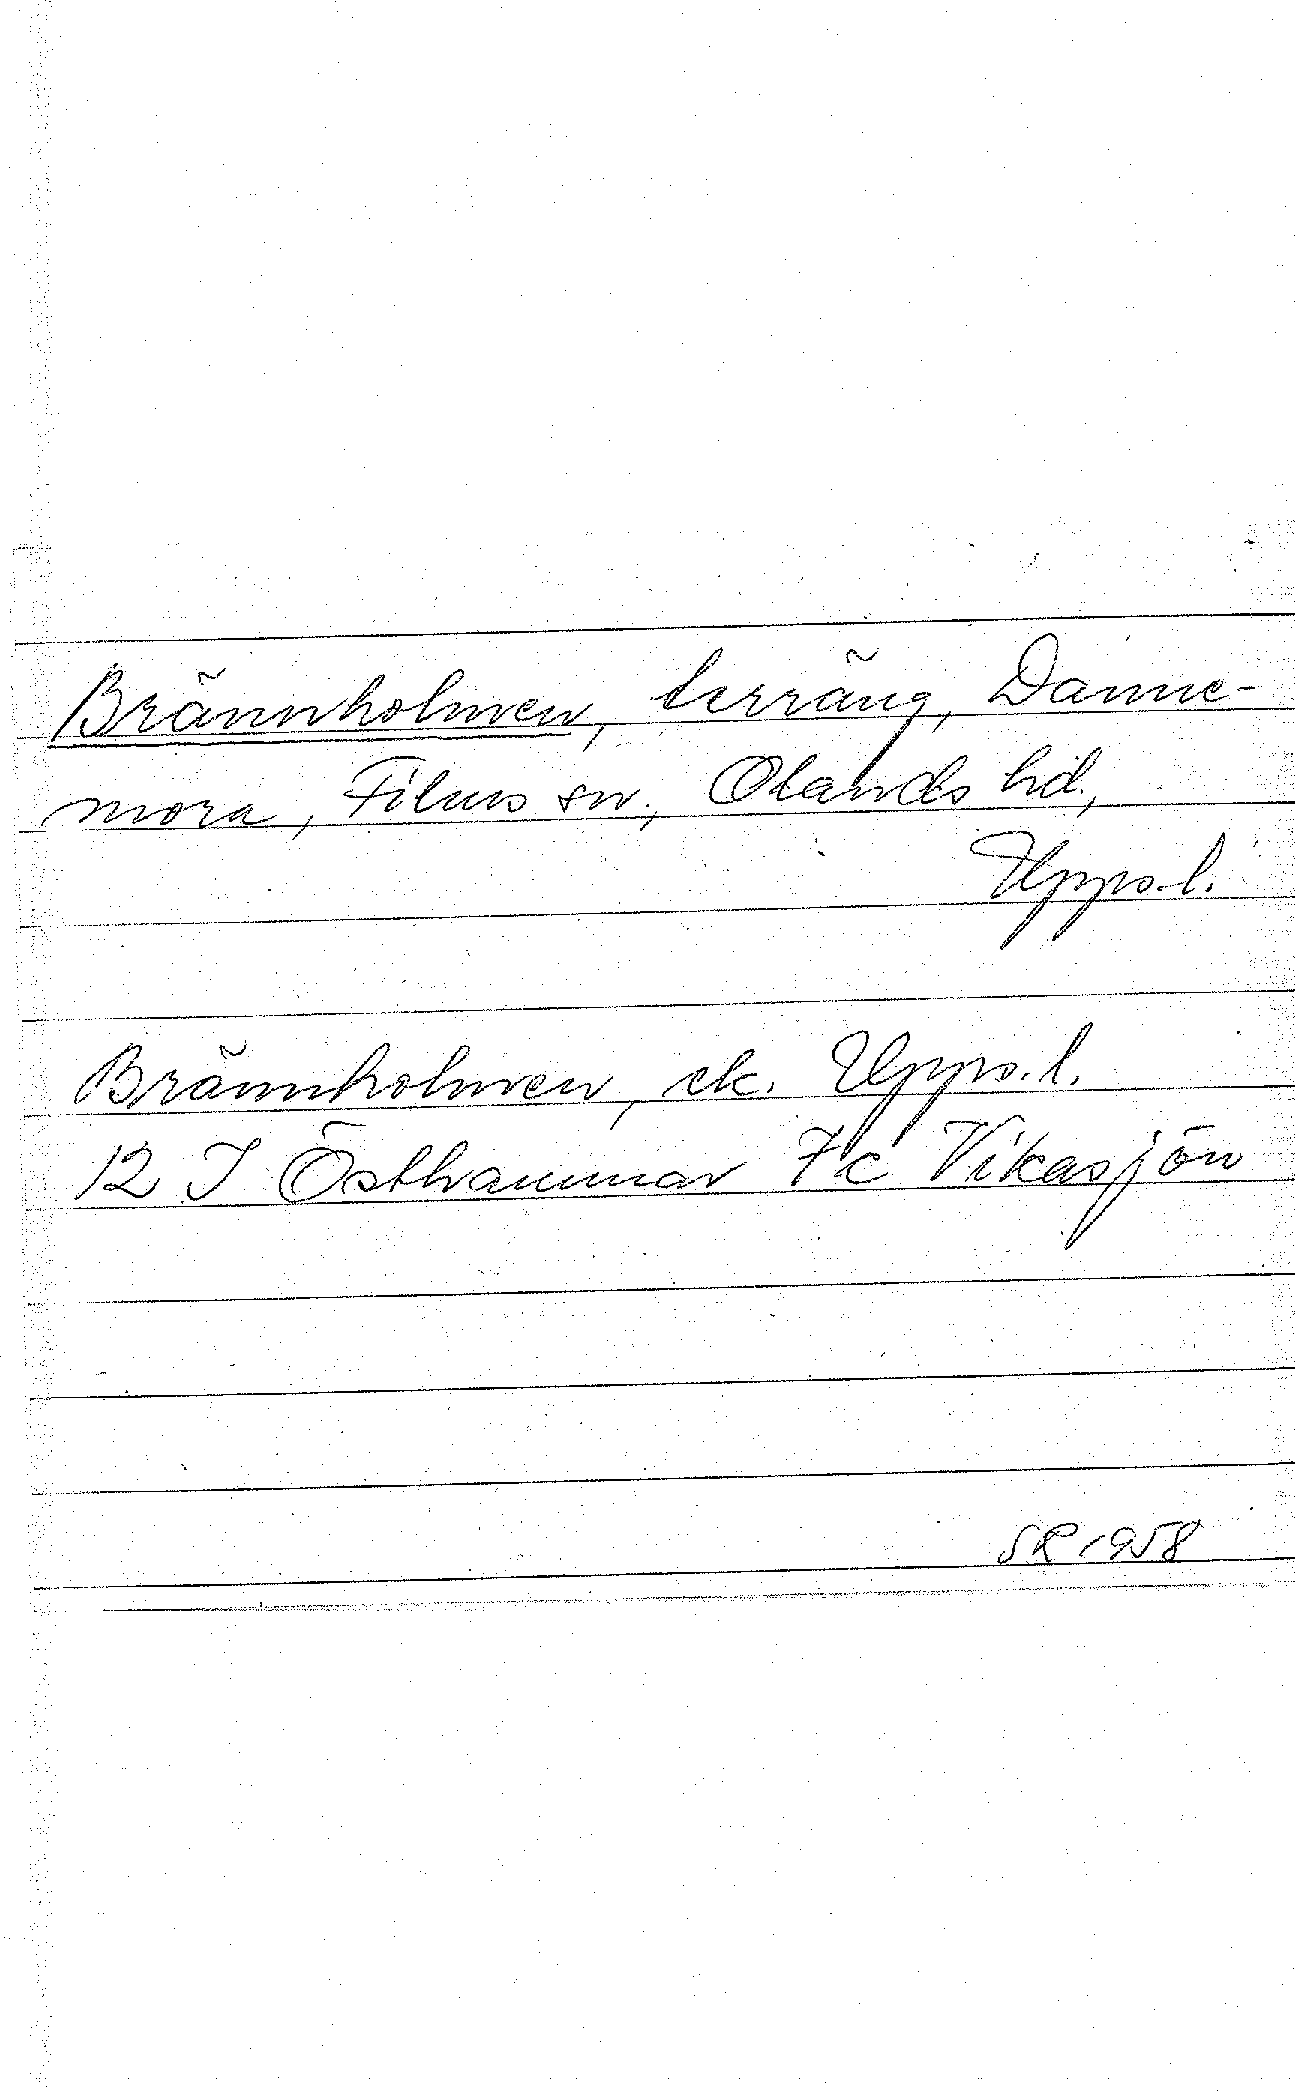 Brännholmen, terräng, Danne-
mora, Films sn., Olands hd.,
Upps.l.
Brännholmen, ek. Upps.l.
12 I Östhammar 7c Vikasjön
SR 1958